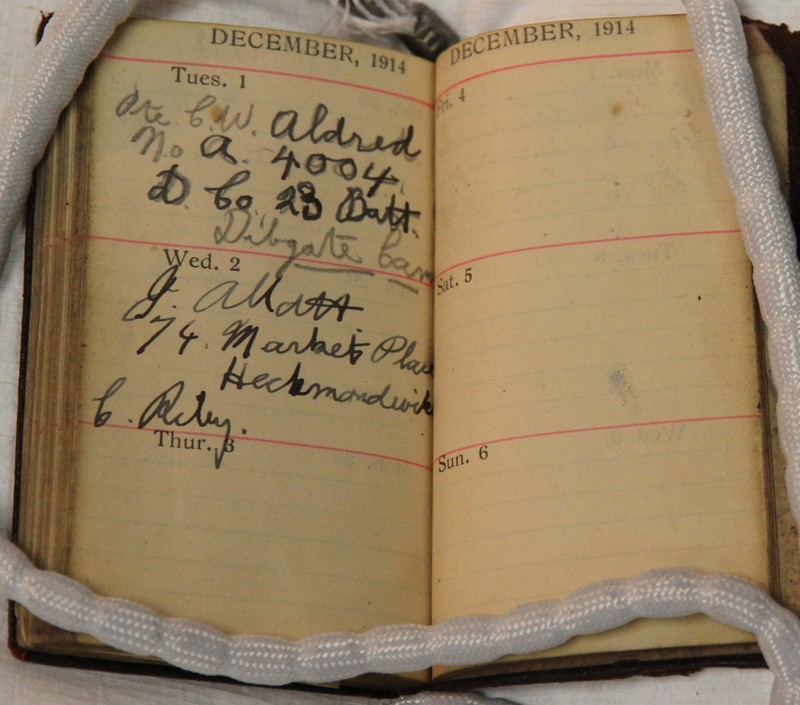 DECEMBER, 1914
Tues. 1
Pte. C. W. Aldred
No A. 4004
D Co. 23 Batt.
Dibgate Cam
Wed. 2
J. Allott
74. Market Place
Heckmondwike
C. Riley.
Thur. 3
DECEMBER, 1914
Fri. 4
Sat. 5
Sun. 6